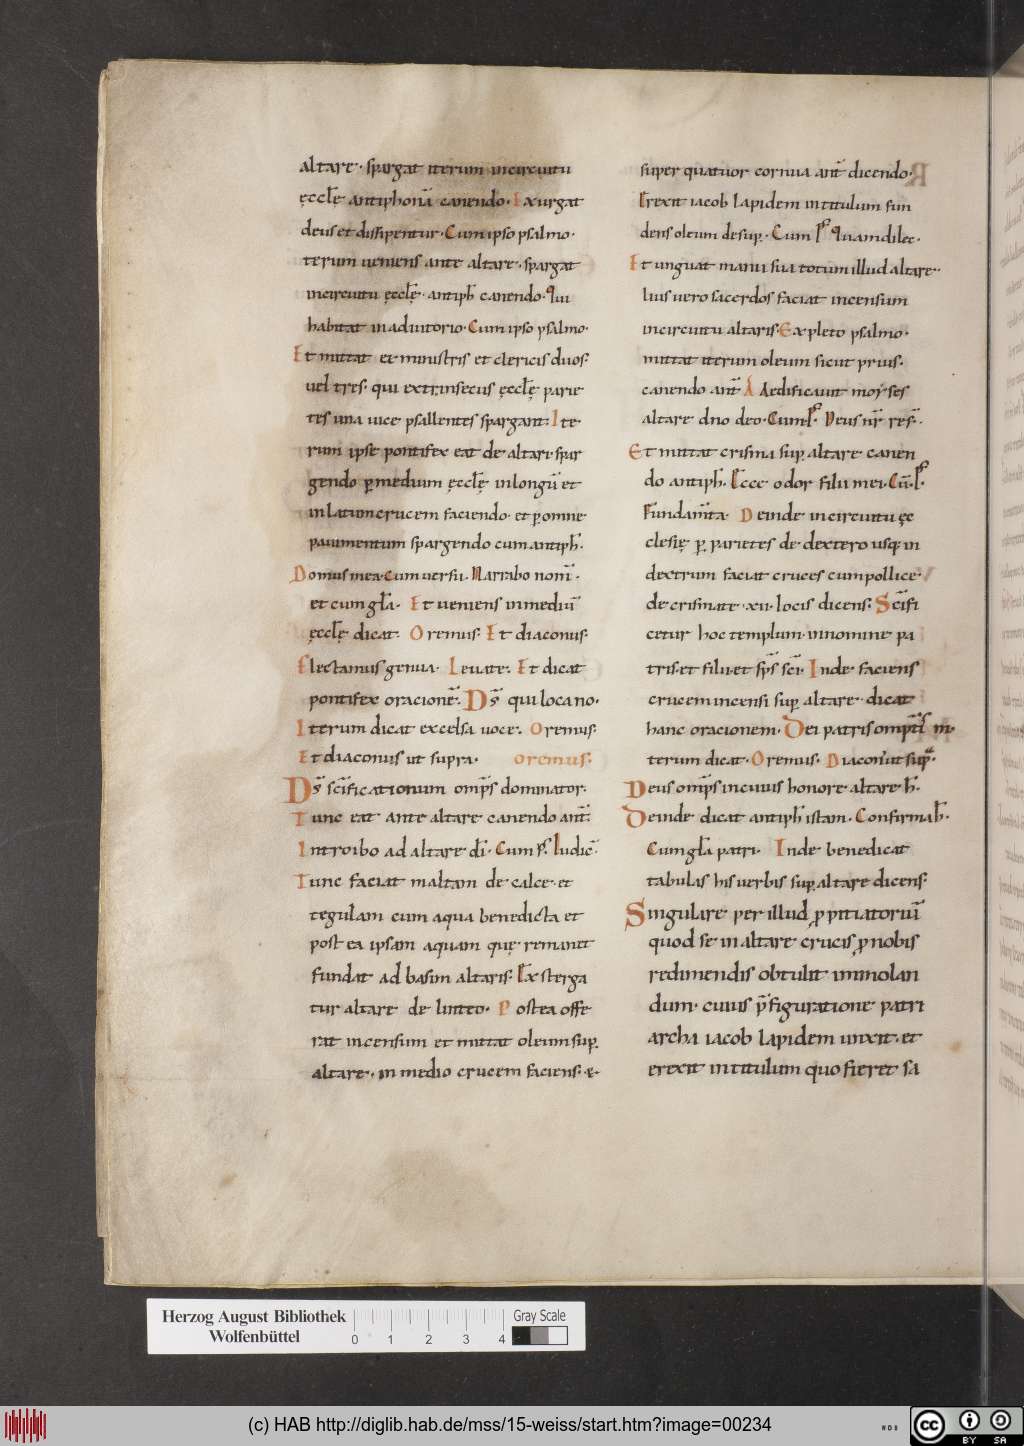 altare · spargat iterum incircuitu
ęccl̄ę antiphonā canendo · Exurgat
deus et dissipentur · Cum ipso psalmo ·
terum ueniens ante altare · spargat
incircuitu ęccl̄ę · antiph̄ canendo · Qui
habitat inadiutorio · Cum ipso psalmo ·
Et mittat ex ministris et clericis duos ·
uel tres · qui extrinsecus ęccl̄ę parie
tes una uice psallentes spargant · Ite
rum ipse pontifex eat de altari spar
gendo ꝑ medium ęccl̄ę inlongū et
inlatum crucem faciendo · et ꝑ omne
pauimentum spargendo cum antiph̄ ·
Domus mea · Cum uersu · Narrabo nom̄ ·
et cum gl̄a · Et ueniens in mediū
ęccl̄ę dicat · Oremus · Et diaconus ·
Flectamus genua · Leuate · Et dicat
pontifex oracionē · Ds̄ qui loca no ·
Iterum dicat excelsa uoce · Oremus ·
Et diaconus ut supra · oremus ·
Ds̄ sc̄ificationum omp̄s dominator ·
Tunc eat ante altare canendo ant̄ ·
Introibo ad altare dī · Cum ps̄ · Iudic̄ ·
Tunc faciat maltam de calce · et
tegulam cum aqua benedicta et
post ea ipsam aquam quę remanet
fundat ad basim altaris · Exsterga
tur altare de linteo · Postea offe
rat incensum et mittat oleum suꝑ
altare · in medio crucem faciens · &
super quatuor cornua ant̄ dicendo ·
Erexit iacob lapidem in titulum fun
dens oleum desuꝑ · Cum ps̄ Quam dilec ·
Et unguat manu sua totum illud altare ·
lius uero sacerdos faciat incensum
incircuitu altaris · Expleto psalmo ·
mittat iterum oleum sicut prius ·
canendo ant̄ Aedificauit moyses
altare dno deo · Cum ps̄ · Deus nr̄ ref̄ ·
Et mittat crisma suꝑ altare canen
do antiph̄ · Ecce odor filii mei · Cū · ps̄
Fundam̄ta · Deinde incircuitu ęc
clesię ꝑ parietes de dextero usq; in
dextrum faciat cruces cum pollice
de crismate · xii · locis dicens · Sc̄ifi
cetur hoc templum · in nomine pa
tris · et filii · et sp̄s sc̄i · Inde faciens
crucem incensi suꝑ altare · dicat
hanc oracionem · Dei patris omp̄tis m̄ ·
terum dicat · Oremus · Diacon' ut sup̄ ·
Deus omp̄s in cuius honore altare h̄ ·
Deinde dicat antiph̄ istam · Confirma h̄ ·
Cum gl̄a patri · Inde benedicat
tabulas his uerbis suꝑ altare dicens ·
Singulare per illud ꝓpitiatoriū
quod se in altare crucis ꝓ nobis
redimendis obtulit immolan
dum · cuius p̄figuratione patri
archa iacob lapidem unxit · et
erexit in titulum quo fieret sa
Herzog August Bibliothek
Wolfenbüttel
0 1 2 3 4
Gray Scale
(c) HAB http://diglib.hab.de/mss/15-weiss/start.htm?image=00234
WDB
cc
BY SA